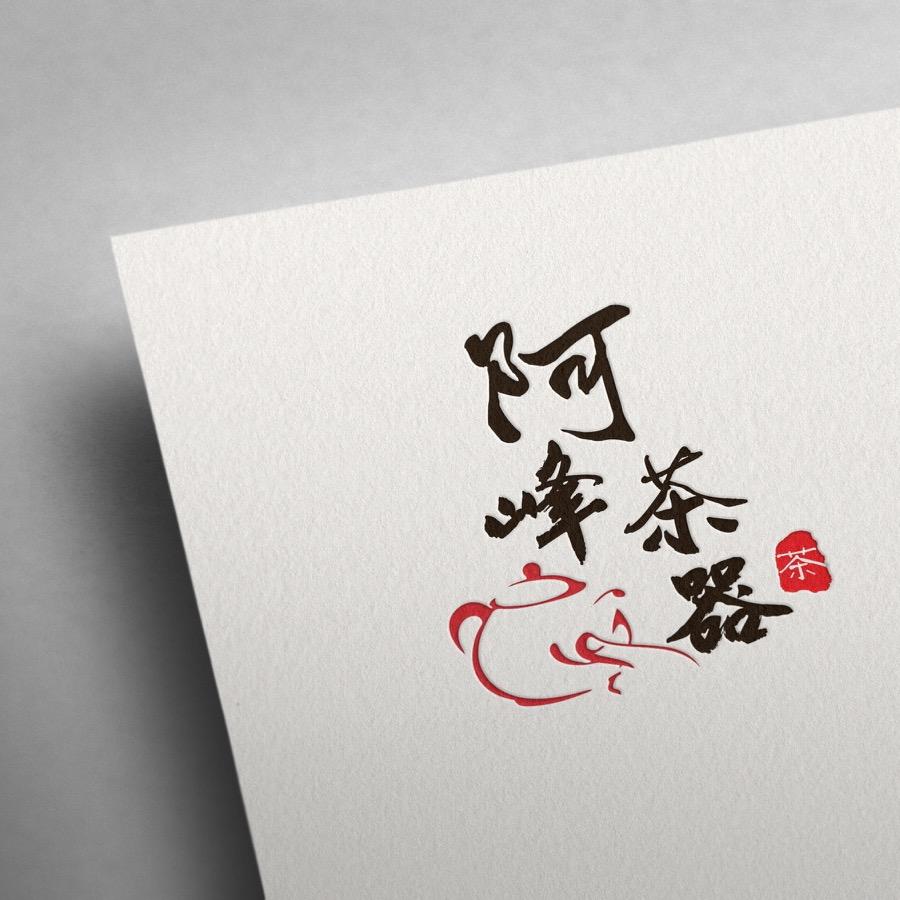 阿峰
茶器
茶